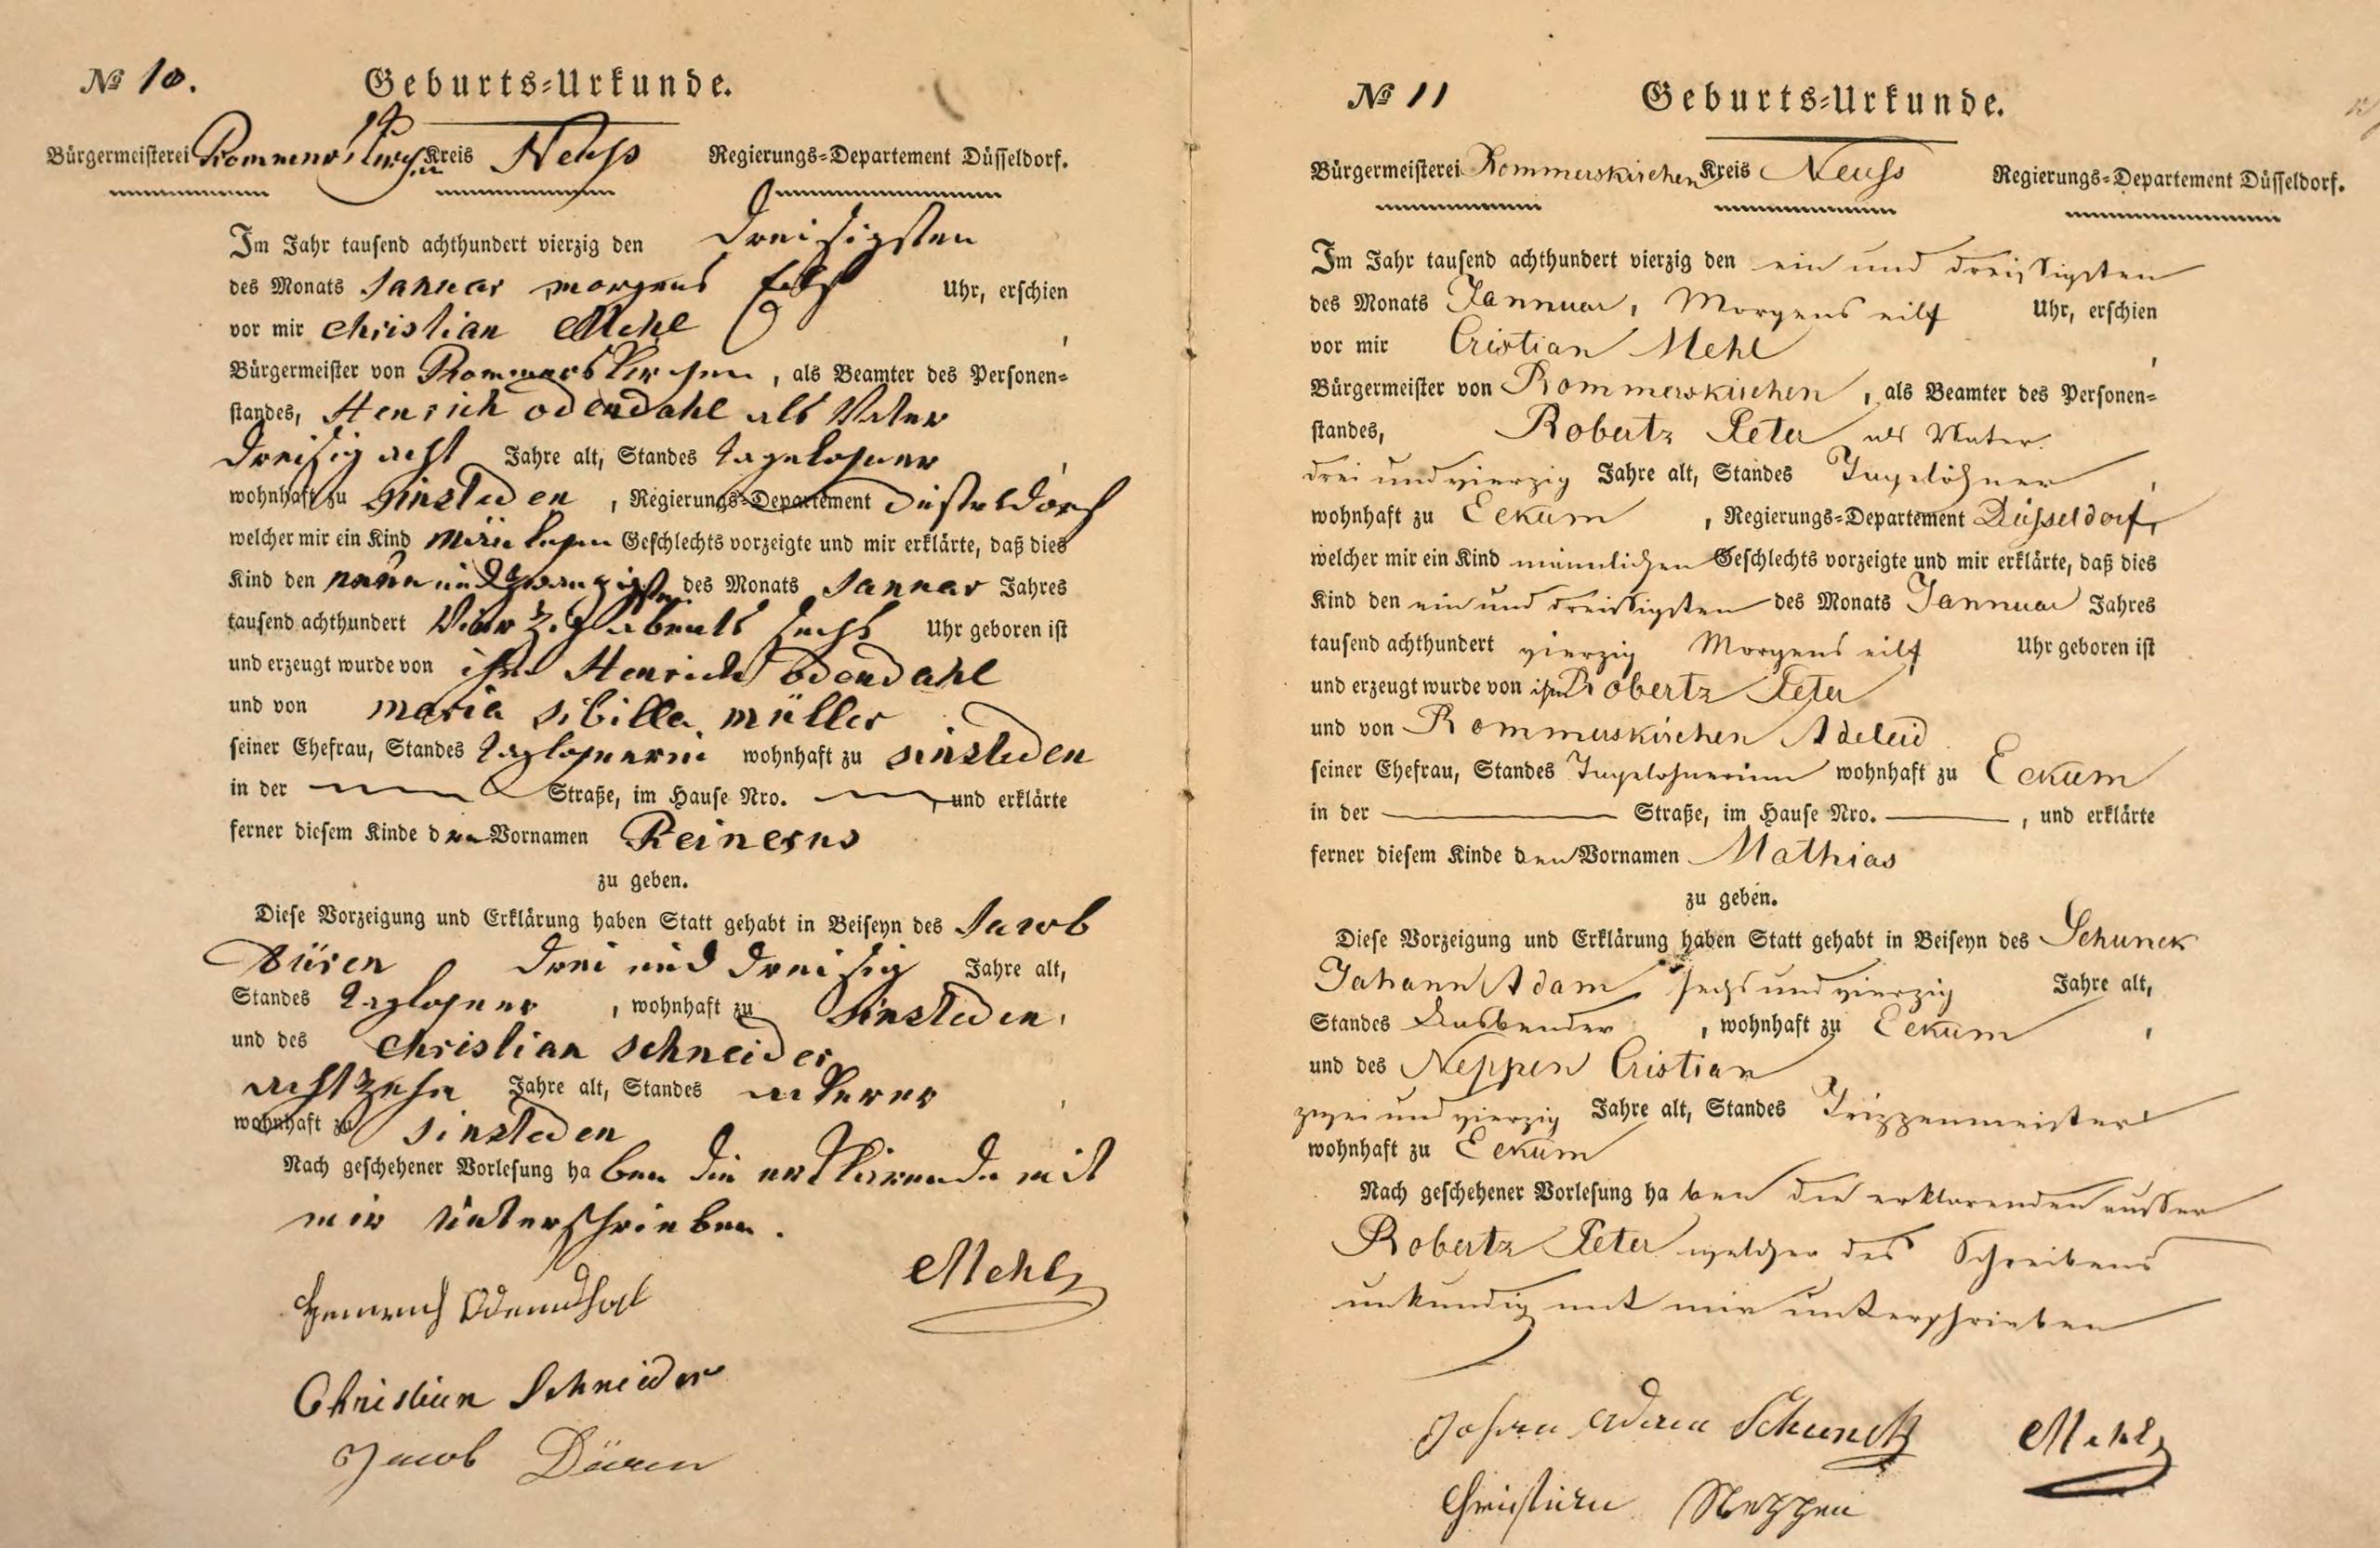 № 10.
Geburts-Urkunde.
Bürgermeisterei Rommerskirchen Kreis Neuss Regierungs-Departement Düsseldorf.
Im Jahr tausend achthundert vierzig den dreisigsten
des Monats Januar morgens Uhr, erschien
vor mir Christian Mehl ,
Bürgermeister von Rommerskirchen , als Beamter des Personen-
standes, Henrich odendahl als Vater
dreisig acht Jahre alt, Standes Tagelohner ,
wohnhaft zu sinsteden , Regierungs-Departement Düsseldorf
welcher mir ein Kind Geschlechts vorzeigte und mir erklärte, daß dies
Kind den neun und zwanzigsten des Monats Januar Jahres
tausend achthundert Vierzig abends sechs Uhr geboren ist
und erzeugt wurde von ihm Henrich odendahl
und von maria sibilla müller
seiner Ehefrau, Standes Taglohnerin wohnhaft zu sinsteden
in der Straße, im Hause Nro. , und erklärte
ferner diesem Kinde den Vornamen Reinerus
zu geben.
Diese Vorzeigung und Erklärung haben Statt gehabt in Beiseyn des Jacob
Düren drei und dreisig Jahre alt,
Standes Taglohner , wohnhaft zu sinsteden ,
und des Christian schneider
achtzehn Jahre alt, Standes ackerer ,
wohnhaft zu sinsteden
Nach geschehener Vorlesung haben die erklärende mit
mir unterschrieben.
Mehl
Heinrich Odendahl
Christian Schneider
Jacob Düren
№ 11
Geburts-Urkunde.
Bürgermeisterei Rommerskirchen Kreis Neuss Regierungs-Departement Düsseldorf.
Im Jahr tausend achthundert vierzig den ein und dreissigsten
des Monats Jannuar, Morgens eilf Uhr, erschien
vor mir Cristian Mehl ,
Bürgermeister von Rommerskirchen , als Beamter des Personen-
standes, Robertz Peter als Vater
drei und vierzig Jahre alt, Standes Tagelöhner ,
wohnhaft zu Eckum , Regierungs-Departement Düsseldorf,
welcher mir ein Kind männlichen Geschlechts vorzeigte und mir erklärte, daß dies
Kind den ein und dreissigsten des Monats Jannuar Jahres
tausend achthundert vierzig Morgens eilf Uhr geboren ist
und erzeugt wurde von ihm Robertz Peter
und von Rommerskirchen Adeleid
seiner Ehefrau, Standes Tagelohnerinn wohnhaft zu Eckum
in der Straße, im Hause Nro. , und erklärte
ferner diesem Kinde den Vornamen Mathias
zu geben.
Diese Vorzeigung und Erklärung haben Statt gehabt in Beiseyn des Schunck
Johann Adam sechs und vierzig Jahre alt,
Standes , wohnhaft zu Eckum ,
und des Neppen Cristian
zwei und vierzig Jahre alt, Standes Trizzenmeister
wohnhaft zu Eckum
Nach geschehener Vorlesung haben die erklarenden ausser
Robertz Peter welcher des Schreibens
unkundig mit mir unterschrieben
Johan Adam Schunck
Mehl
Christian Neppen